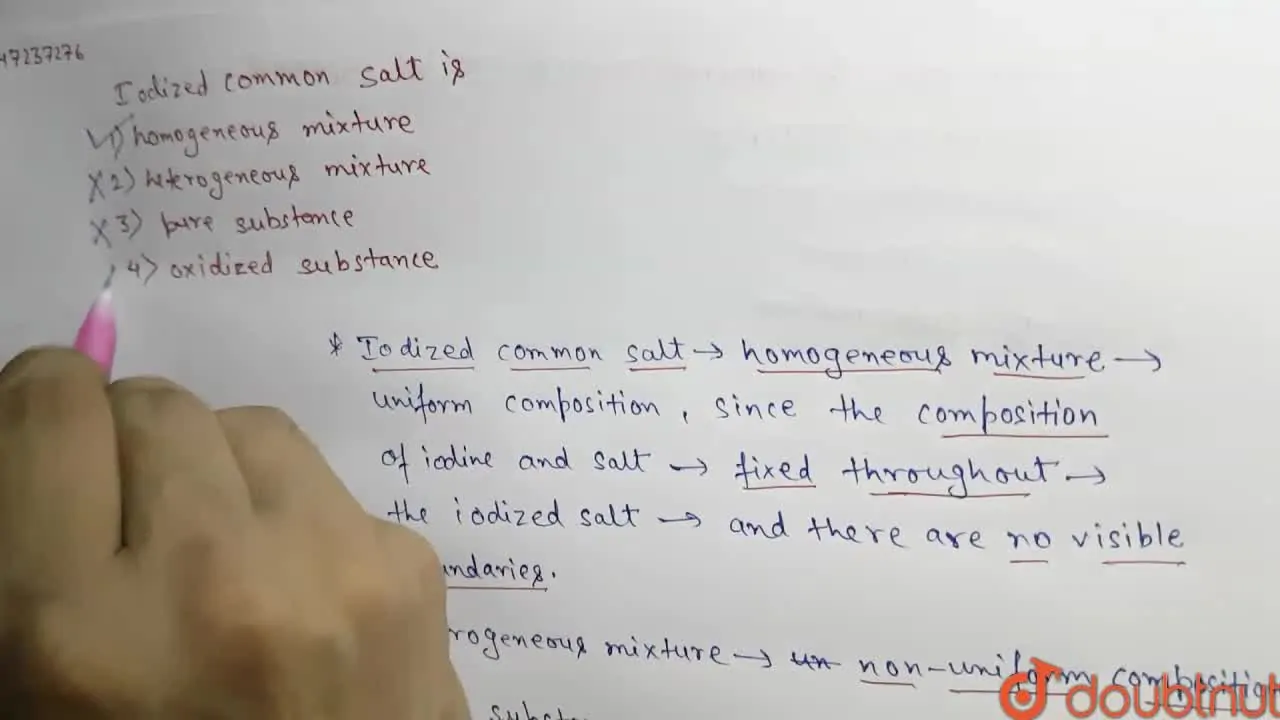 47237276
Iodized common salt is
1) homogeneous mixture
X 2) heterogeneous mixture
X 3) pure substance
4) oxidized substance
* Iodized common salt → homogeneous mixture →
uniform composition, since the composition
of iodine and salt → fixed throughout →
the iodized salt → and there are no visible
undaries.
rogeneous mixture → un non-uniform composition
doubtnut